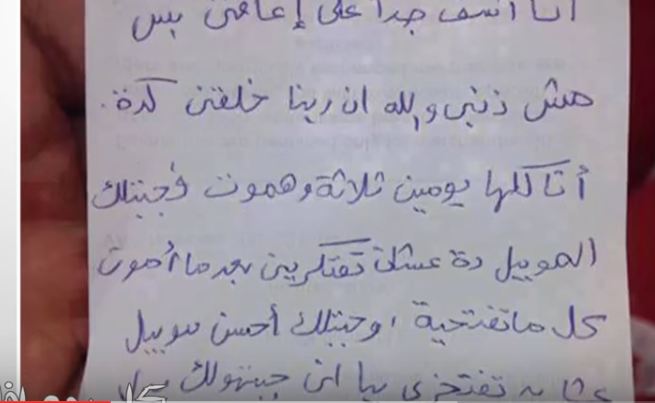 أنا آسف جدا على إعاقتى بس
مش ذنبى والله ان ربنا خلقنى كدة.
أنا كلها يومين ثلاثة وهموت فجبتلك
الموبيل دة عشان تفتكرينى بعد ما أموت
كل ماتفتحية، وجبتلك أحسن موبيل
عشان تفتخرى بيا انى جبتهولك